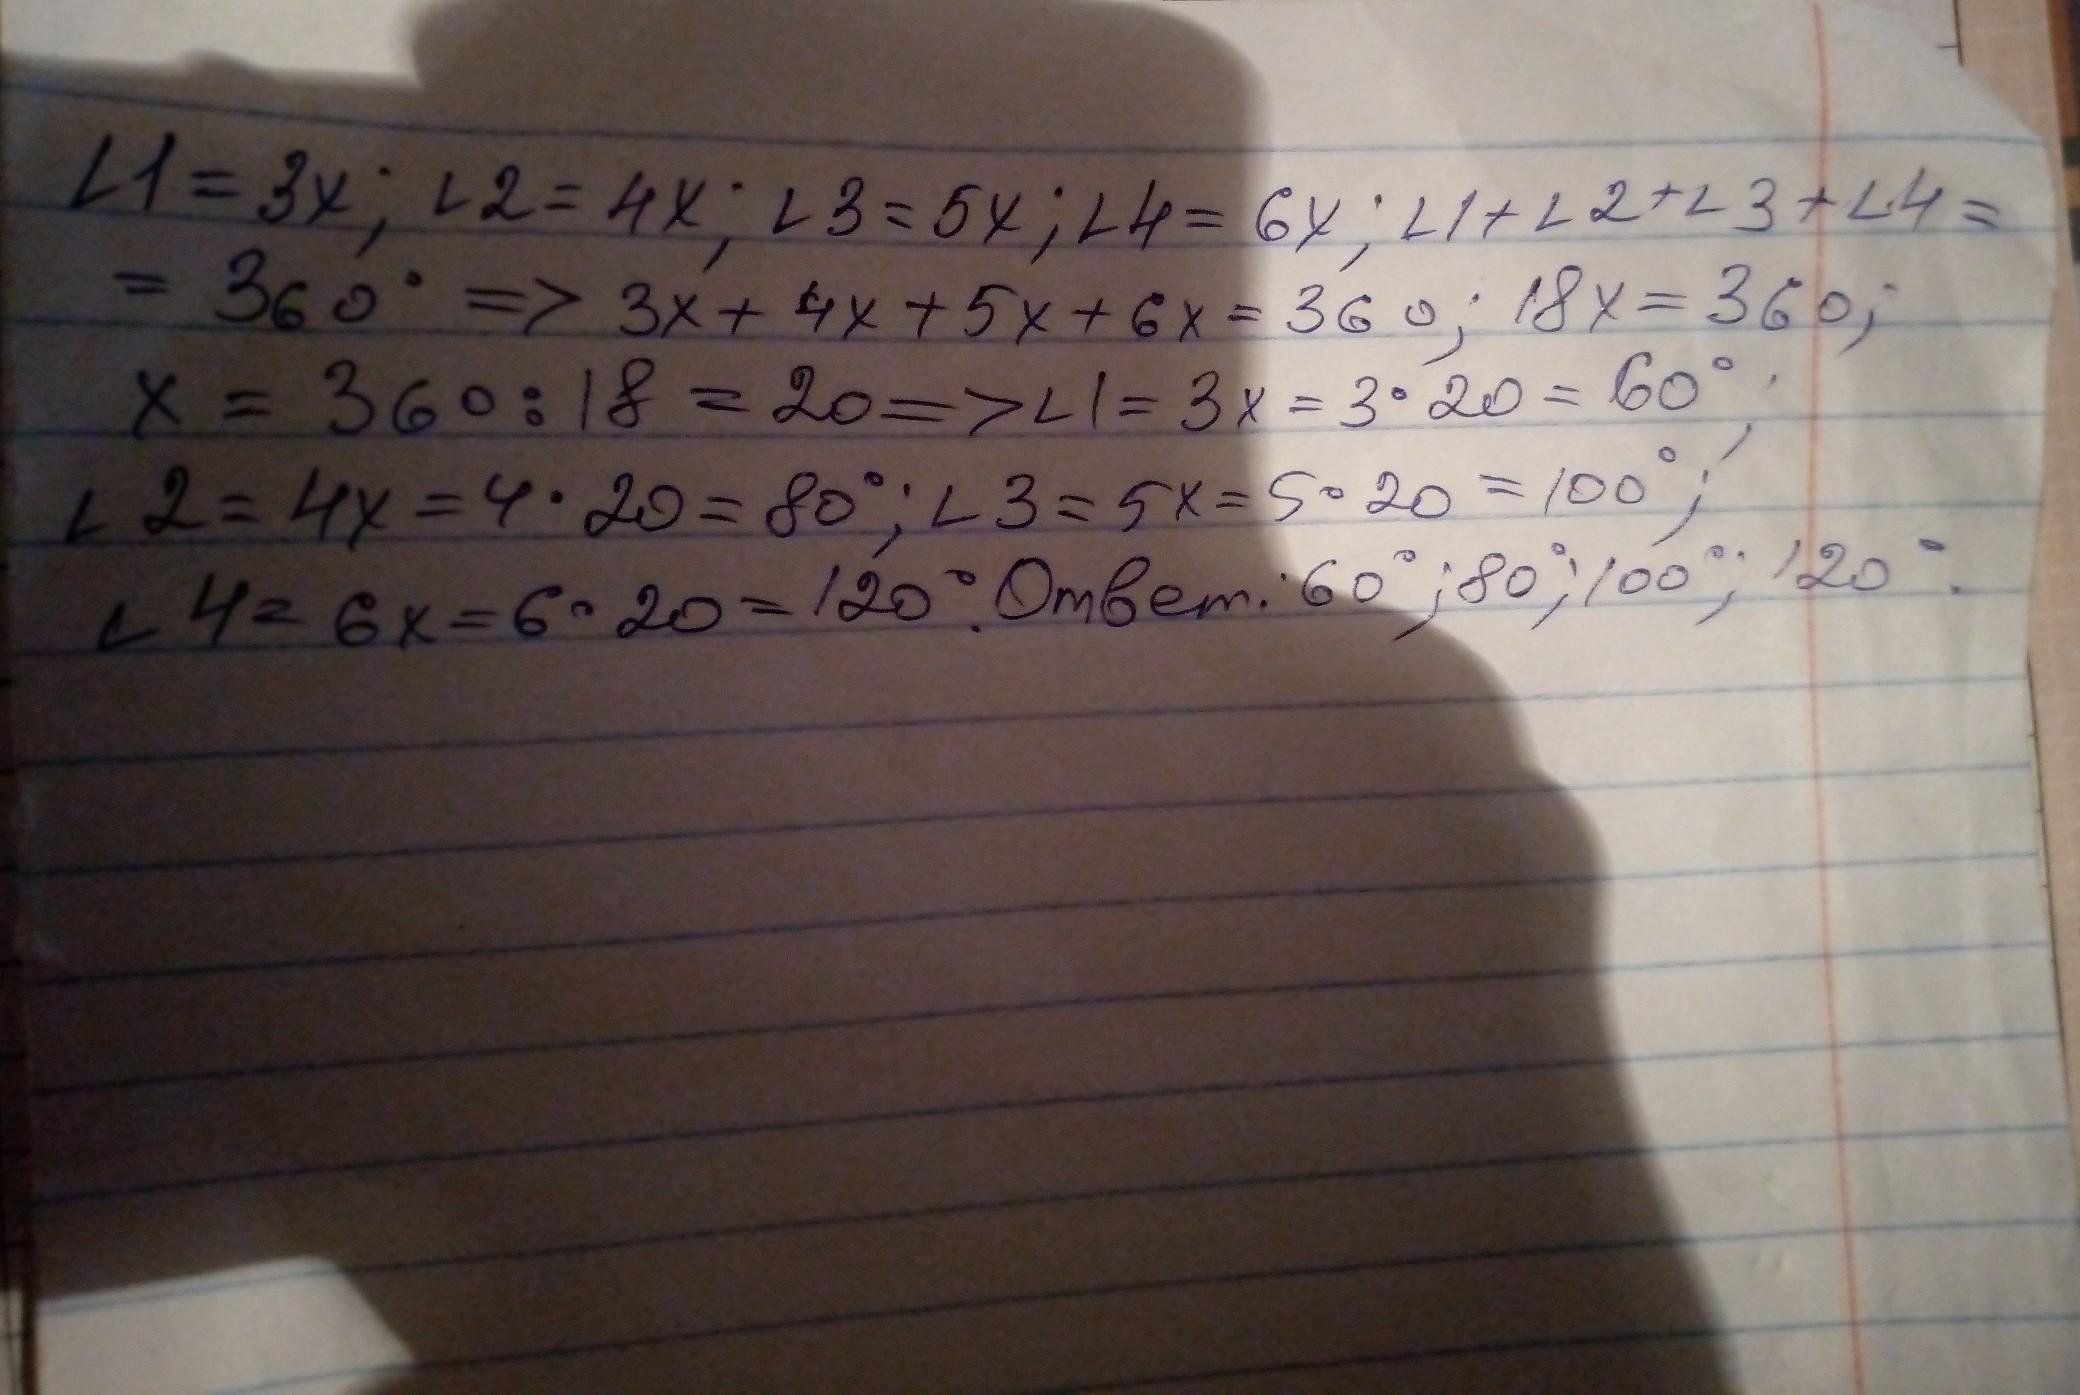 ∠1=3x; ∠2=4x; ∠3=5x; ∠4=6x; ∠1+∠2+∠3+∠4=
=360° => 3x+4x+5x+6x=360; 18x=360;
x=360:18=20=>∠1=3x=3·20=60°;
∠2=4x=4·20=80°; ∠3=5x=5·20=100°;
∠4=6x=6·20=120°. Ответ: 60°; 80°; 100°; 120°.